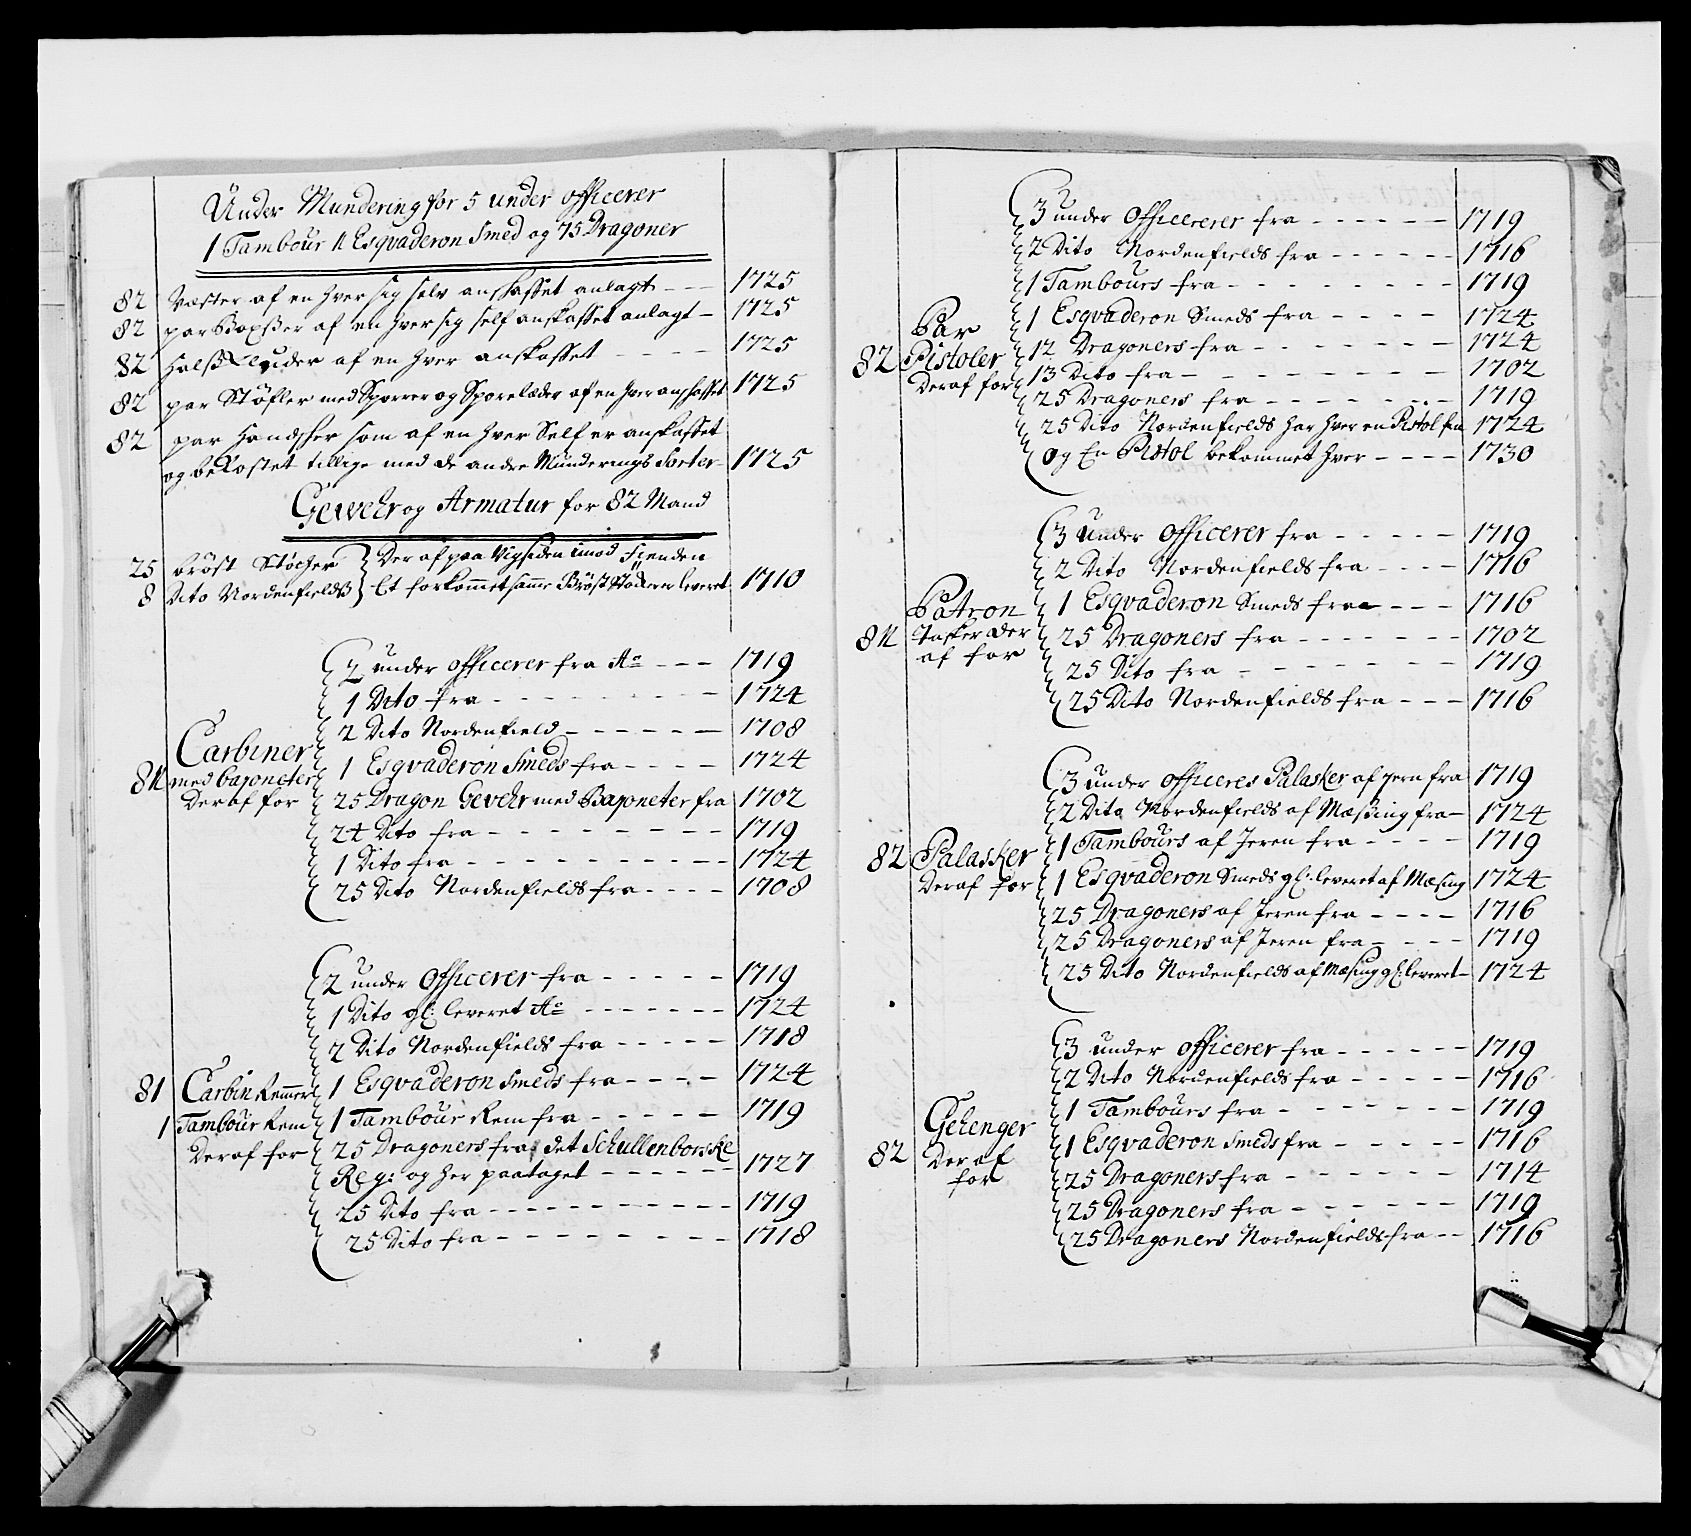 Under Mundering for 5 under officerer
1 Tambour 1 Esqvaderon Smed og 75 Dragoner
82 Vester af en hver sig selv anskaffet anlagt - - - 1725
82 par Boxser af en hver sig self anskaffet anlagt - 1725
82 Halskluder af en hver anskaffet - - - - 1725
82 par Støfler med Sporrer og Sporelæder af en hver anskaffet 1725
82 par Handsker som af en hver Self er anskaffet
og bekostet tillige med de andre Munderings Sorter - 1725
Gewehr og Armatur for 82 Mand
25 brøst Støcher } Der af paa Vigsiden imod Fienden
8 Dito Nordenfields } Et forkommet samme Brøst Støcker er leveret 1710
2 under officerer fra Ao - - - 1719
1 Dito fra - - - - - - - - 1724
2 Dito Nordenfield - - - - - - 1708
Carbiner
81 med bajoneter
Deraf for
1 Esqvaderon Smeds fra - - - - 1724
25 Dragon Gevehr med Bajoneter fra 1702
24 Dito fra - - - - - - - - - 1719
1 Dito fra - - - - - - - - - - 1724
25 Dito Nordenfields fra - - - - 1708
2 under officerer fra - - - - - 1719
1 Dito gl: leveret Ao - - - - - - - 1724
2 Dito Nordenfields fra - - - - - 1718
81 Carbin Remmer 1 Esqvaderon Smeds fra - - - - 1724
1 Tambour Rem 1 Tambour Rem fra - - - - - 1719
Deraf for 25 Dragoners fra det Schullenborske
Reg: og her paataget - - - - - - 1727
25 Dito fra - - - - - - - - - - - 1719
25 Dito fra - - - - - - - - - 1718
3 under Officererer fra - - - - - - 1719
2 Dito Nordenfields fra - - - - - - 1716
1 Tambours fra - - - - - - - - - 1719
Par
82 Pistoler
Deraf for
1 Esqvaderon Smeds fra - - - - 1724
12 Dragoners fra - - - - - - - - 1724
13 Dito fra - - - - - - - - - 1702
25 Dragoners fra - - - - - - - - 1719
25 Dito Nordenfields har hver en Pistol fra 1724
og En Pistol bekommet hver - - - - 1730
3 Under officerer fra - - - - - 1719
2 Dito Nordenfields fra - - - - 1716
Patron
81 Tasker der
af for
1 Esqvaderon Smeds fra - - - 1716
25 Dragoners fra - - - - - - - 1702
25 Dito fra - - - - - - - - 1719
25 Dito Nordenfields fra - - - 1716
3 under officeres Palasker af jern fra 1719
2 Dito Nordenfields af Mæssing fra - 1724
82 Palasker
Deraf for
1 Tambours af Jeren fra - - - - 1719
1 Esqvaderon Smeds gl: leveret af Mæsing 1724
25 Dragoners af Jeren fra - - - - 1716
25 Dragoners af Jeren fra - - - - 1719
25 Dito Nordenfields af Mæsing gl: leveret - 1724
3 under officerer fra - - - - - - 1719
2 Dito Nordenfields fra - - - - - 1716
Gehenger
82 Der af
for
1 Tambours fra - - - - - - - 1719
1 Esqvaderon Smeds fra - - - - - 1716
25 Dragoners fra - - - - - - - 1714
25 Dragoners fra - - - - - - 1719
25 Dragoners Nordenfields fra - - 1716